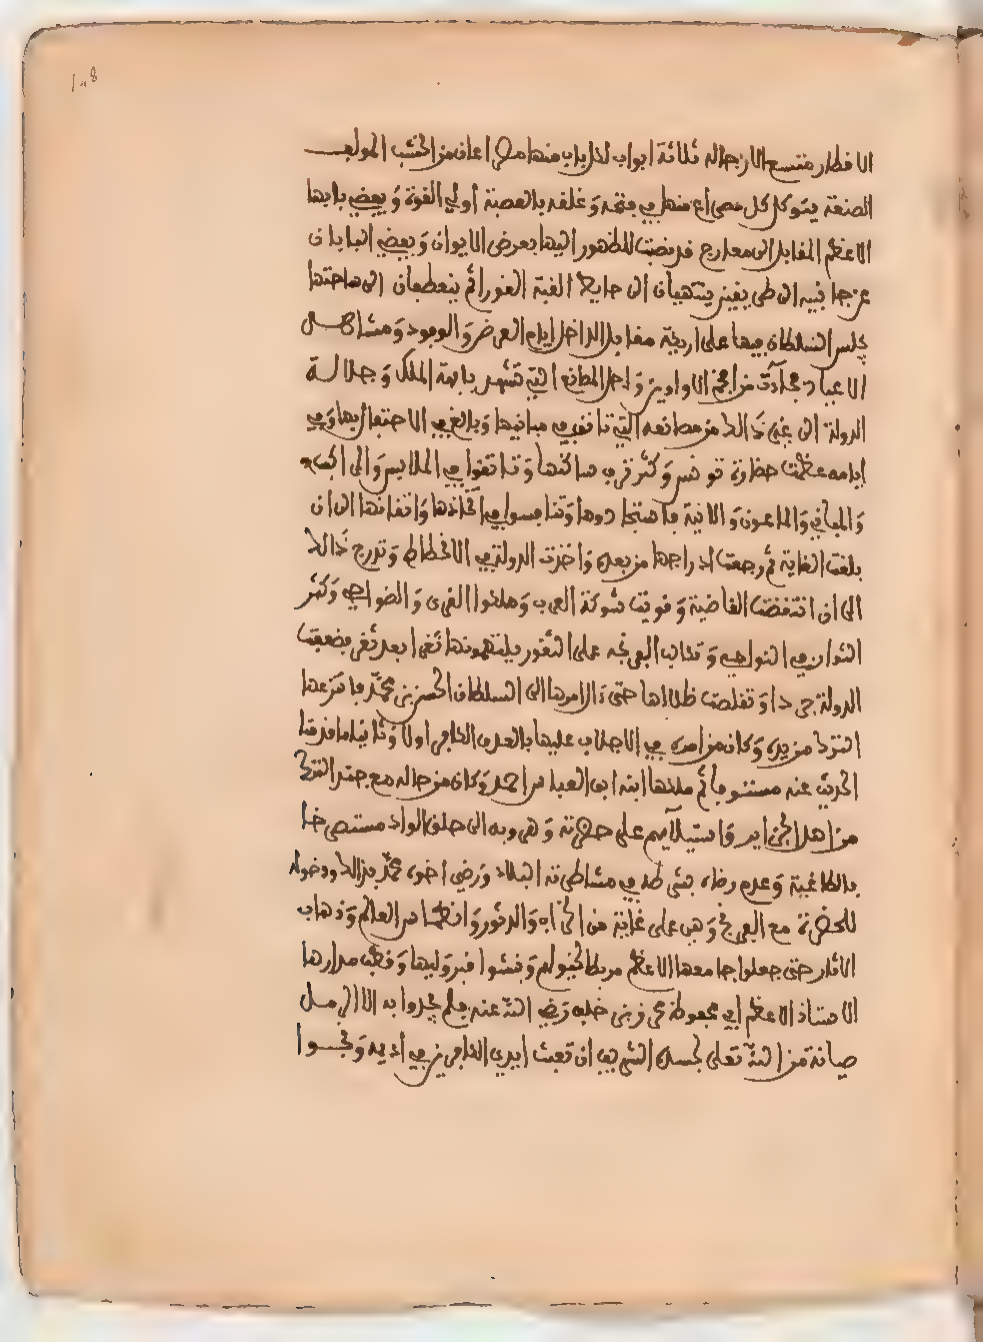 ١٠٨
الاقطار متسع الارجاله ثلاثة ابواب لكل باب منها مصراعان من الخشب المولف
الصنعة ينوء كل مصراع منها في فتحه وغلقه بالعصبة أولي القوة ويفضي بابها
الاعظم المقابل الى معارج قد نصبت للظهور اليها بعرض الايوان ويفضي البابان
عن جانبيه الى طريقين ينتهيان الى حايط القبة القوراثم ينعطفان الى ساحتها
يجلس السلطان فيها على اريكة مقابل الداخل ايام العرض والوفود ومشاهد
الاعياد فجاءت من افخم الاواوين واجل المصانع التي تشهد بابهة الملك وجلالة
الدولة الى غير ذالك من مصانعه التي تانق في مبانيها وبالغ في الاحتفال بها وفي
ايامه عظمت حضارة تونس وكثر ترف ساكنها وتانقوا في الملابس والمراكب
والمباني والماعون والانية فاستجادوها وتنافسوا في اتخاذها وانتقائها الى ان
بلغت الغاية ثم رجعت ادراجها من بعده واخذت الدولة في الانحطاط وتدرج ذالك
الى ان انتقضت القاضية وقويت شوكة العرب وملكوا القرى والضواحي وكثر
الثوار في النواحي وتكالب الفرنجه على الثغور يلتهمونها ثغرا بعد ثغر فضعفت
الدولة جدا وتقلصت ظلالها حتى ءال امرها الى السلطان الحسن بن محمد فانتزعها
الترك من يده وكان من امره في الاجلاب عليها بالعدو الكافر اولا وثانيا ما قدمنا
الحديث عنه مستوفا ثم ملكها ابنه ابو العباس احمد وكان من حاله مع جند الترك
من اهل الجزاير واستيلآيهم على حضرته وهروبه الى حلق الواد مستصرخا
بالطاغية وعدم رضاه بشرطه في مشاطرته البلاد ورضي اخوه محمد بذالك ودخوله
للحضرة مع الفرنج وهي على غاية من الخراب والدثور وانطماس المعالم وذهاب
الاثار حتى جعلوا جامعها الاعظم مربطا لخيولهم ونبشوا قبر وليها وقطب مدارها
الاستاذ الاعظم أبي محفوظ محرز بن خلف رضي الله عنه فلم يجدوا به الا الرمل
صيانة من الله تعلى لجسده الشريف ان تعبث ايدي الكافرين في أديمه ونجسوا